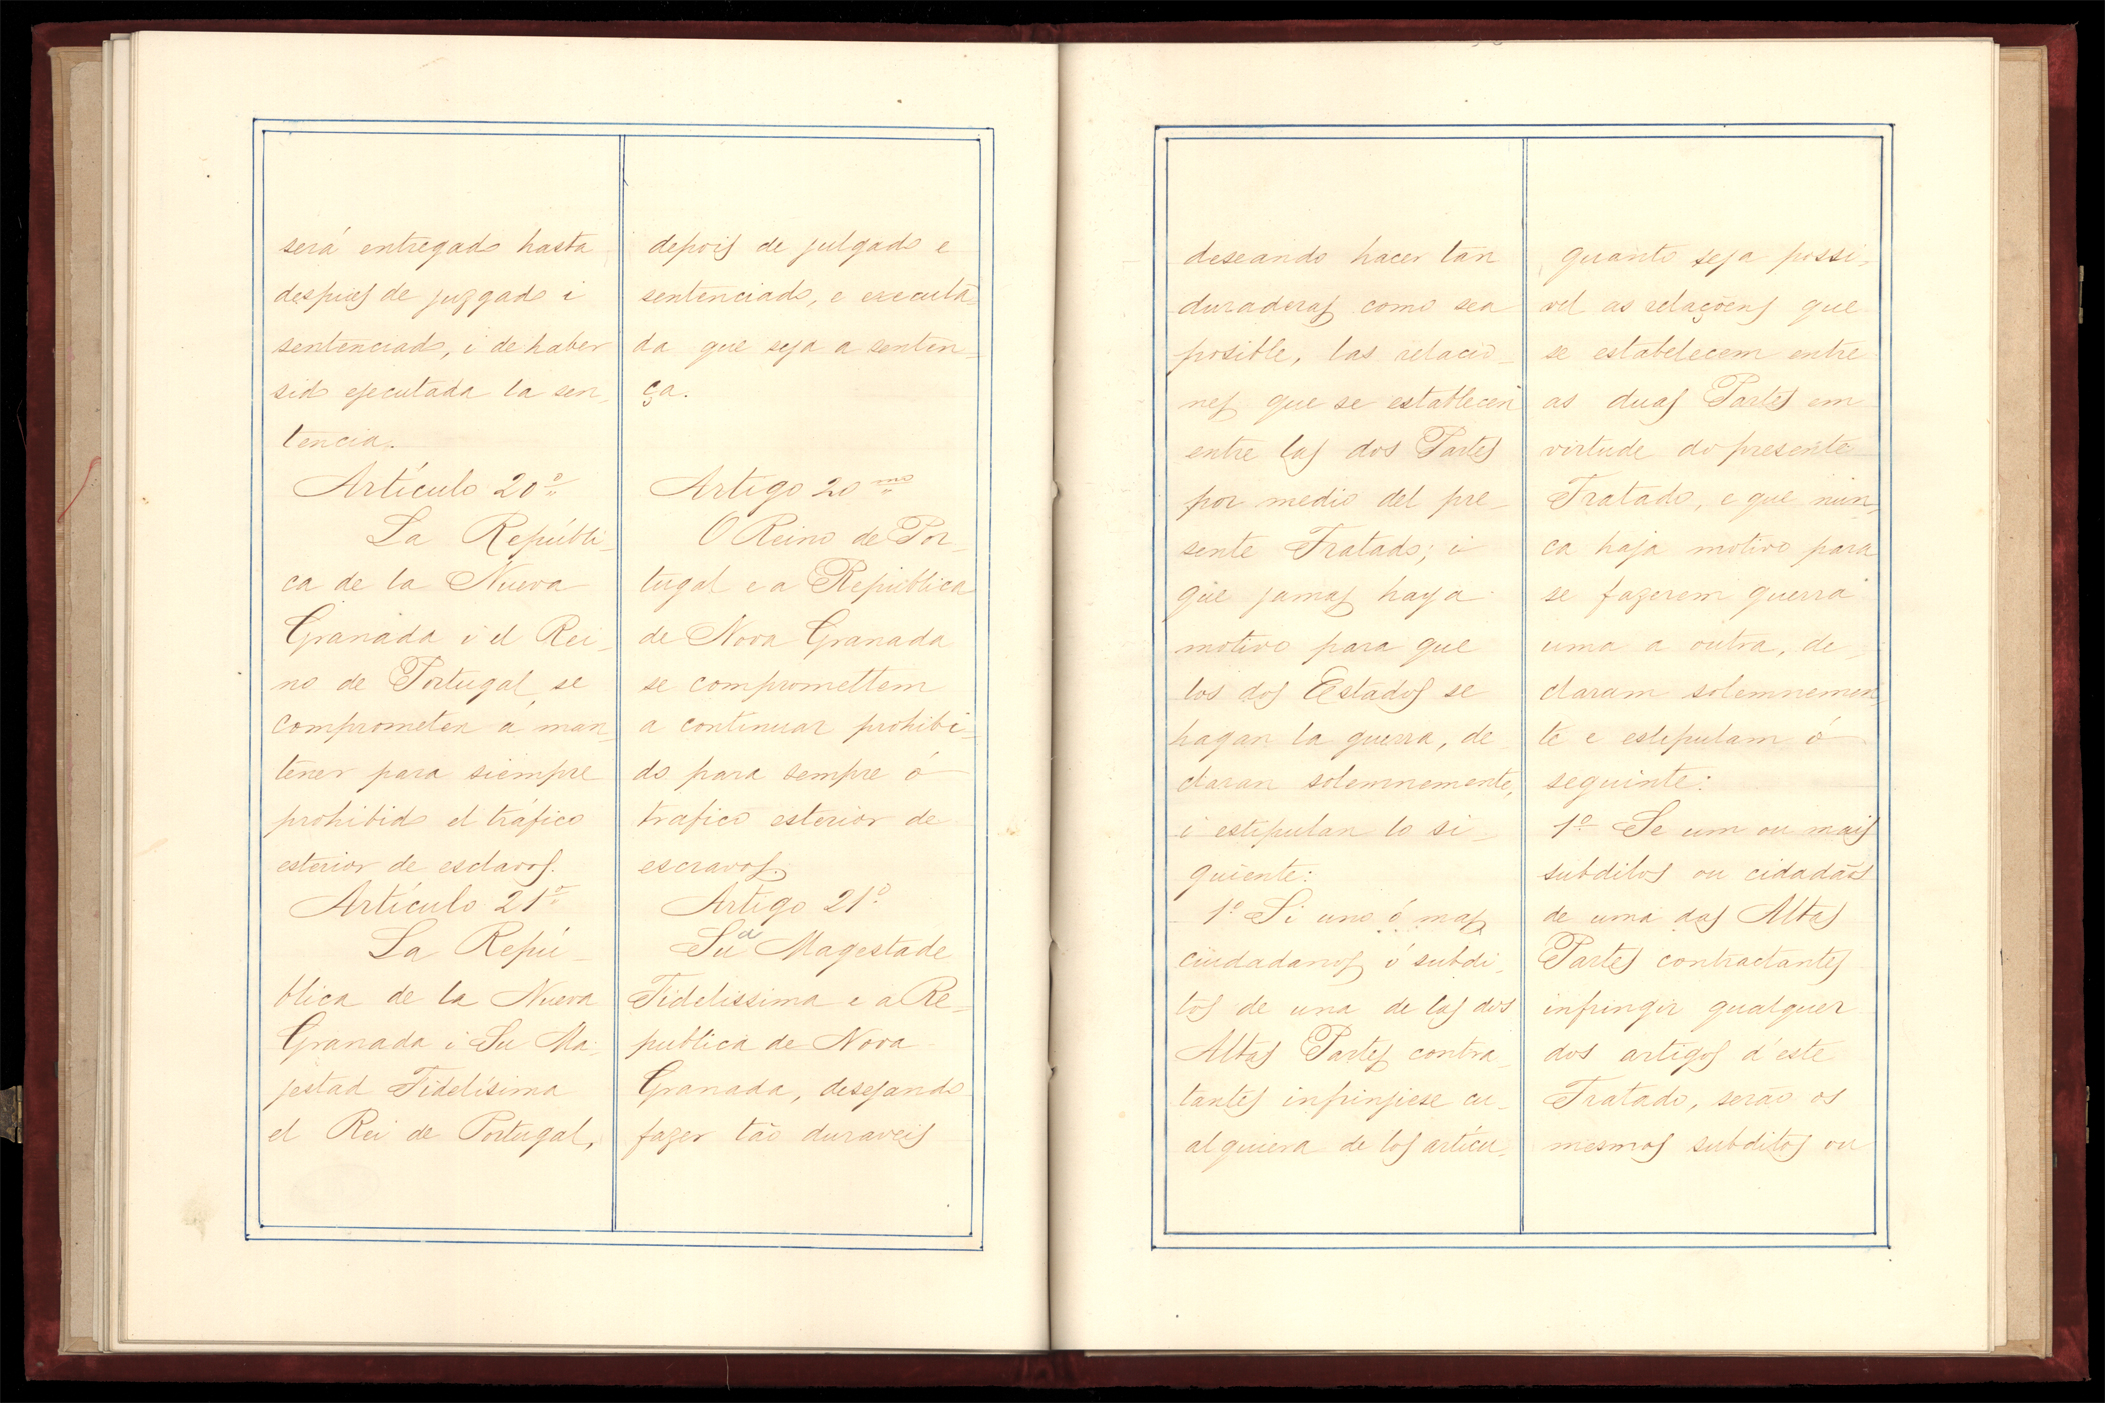 será entregado hasta
despues de juzgado i
sentenciado, i de haber
sido ejecutada la sen-
tencia.
Artículo 20º
La Repúbli-
ca de la Nueva
Granada i el Rei-
no de Portugal se
comprometen á man-
tener para siempre
prohibido el tráfico
esterior de esclavos.
Artículo 21º
La Repú-
blica de la Nueva
Granada i Su Ma-
jestad Fidelísima
el Rei de Portugal,
depois de julgado e
sentenciado, e executa-
da que seja a senten-
ça.
Artigo 20mo
O Reino de Por-
tugal e a Republica
de Nova Granada
se compromettem
a continuar prohibi-
do para sempre o
trafico esterior de
escravos.
Artigo 21º
Sua Magestade
Fidelissima e a Re-
publica de Nova
Granada, desejando
fazer tão duraveis
deseando hacer tan
duraderas como sea
posible, las relacio-
nes que se establecen
entre las dos Partes
por medio del pre-
sente Tratado; i
que jamas haya
motivo para que
los dos Estados se
hagan la guerra, de
claran solemnemente,
i estipulan lo si-
guiente:
1º Si uno ó mas
ciudadanos ó subdi-
tos de una de las dos
Altas Partes contra-
tantes infrinjiese cu-
alquiera de los artícu-
quanto seja possi-
vel as relaçoens que
se estabelecem entre
as duas Partes em
virtude do presente
Tratado, e que nun-
ca haja motivo para
se fazerem guerra
uma a outra, de-
claram solemnemen-
te e estipulam o
seguinte:
1º Se um ou mais
subditos ou cidadãos
de uma das Altas
Partes contractantes
infringir qualquer
dos artigos d'este
Tratado, serão os
mesmos subditos ou